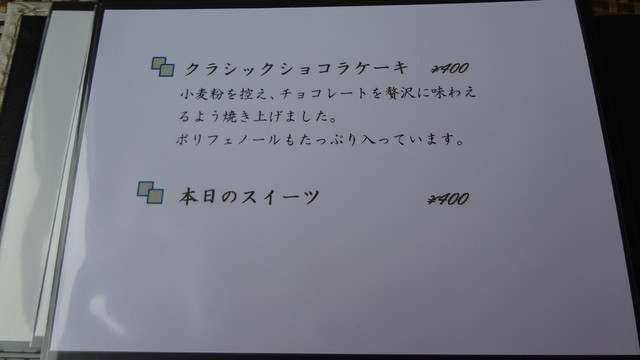 クラシックショコラケーキ ¥400
小麦粉を控え、チョコレートを贅沢に味わえ
るよう焼き上げました。
ポリフェノールもたっぷり入っています。
本日のスイーツ ¥400